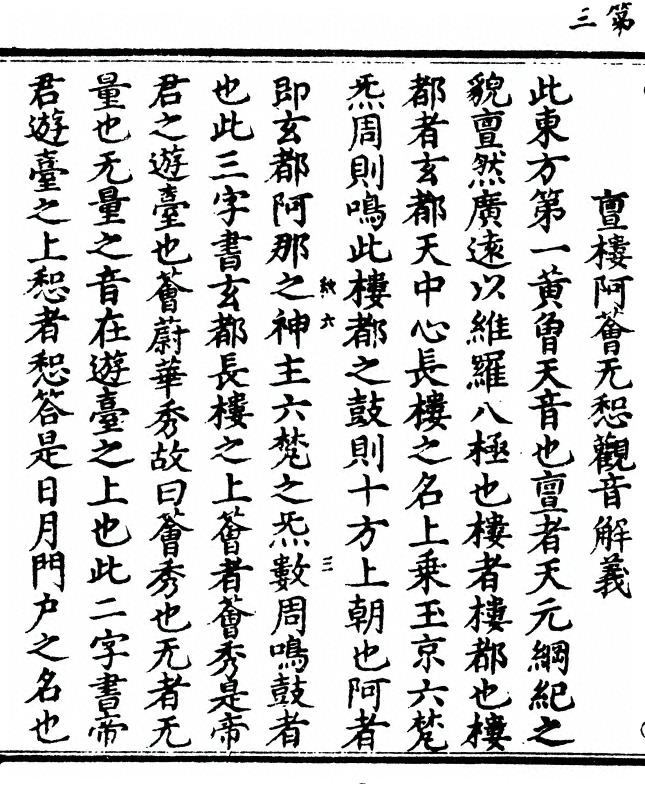 第三
亶樓阿薈无惒觀音解義
此東方第一黃曾天音也亶者天元綱紀之
貌亶然廣遠以維羅八極也樓者樓都也樓
都者玄都天中心長樓之名上乗玉京六梵
炁周則鳴此樓都之鼓則十方上朝也阿者
即玄都阿那之神主六梵之炁數周鳴鼓者
也此三字書玄都長樓之上薈者薈秀是帝
君之遊臺也薈蔚華秀故曰薈秀也无者无
量也无量之音在遊臺之上也此二字書帝
君遊臺之上惒者惒答是日月門户之名也
六
三